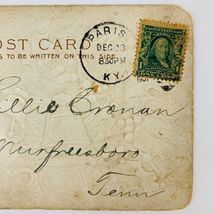 PARIS
OST CARD
DEC 23
S TO BE WRITTEN ON THIS SIDE
830PM
KY.
illie Cronan
Murfreesboro
Tenn